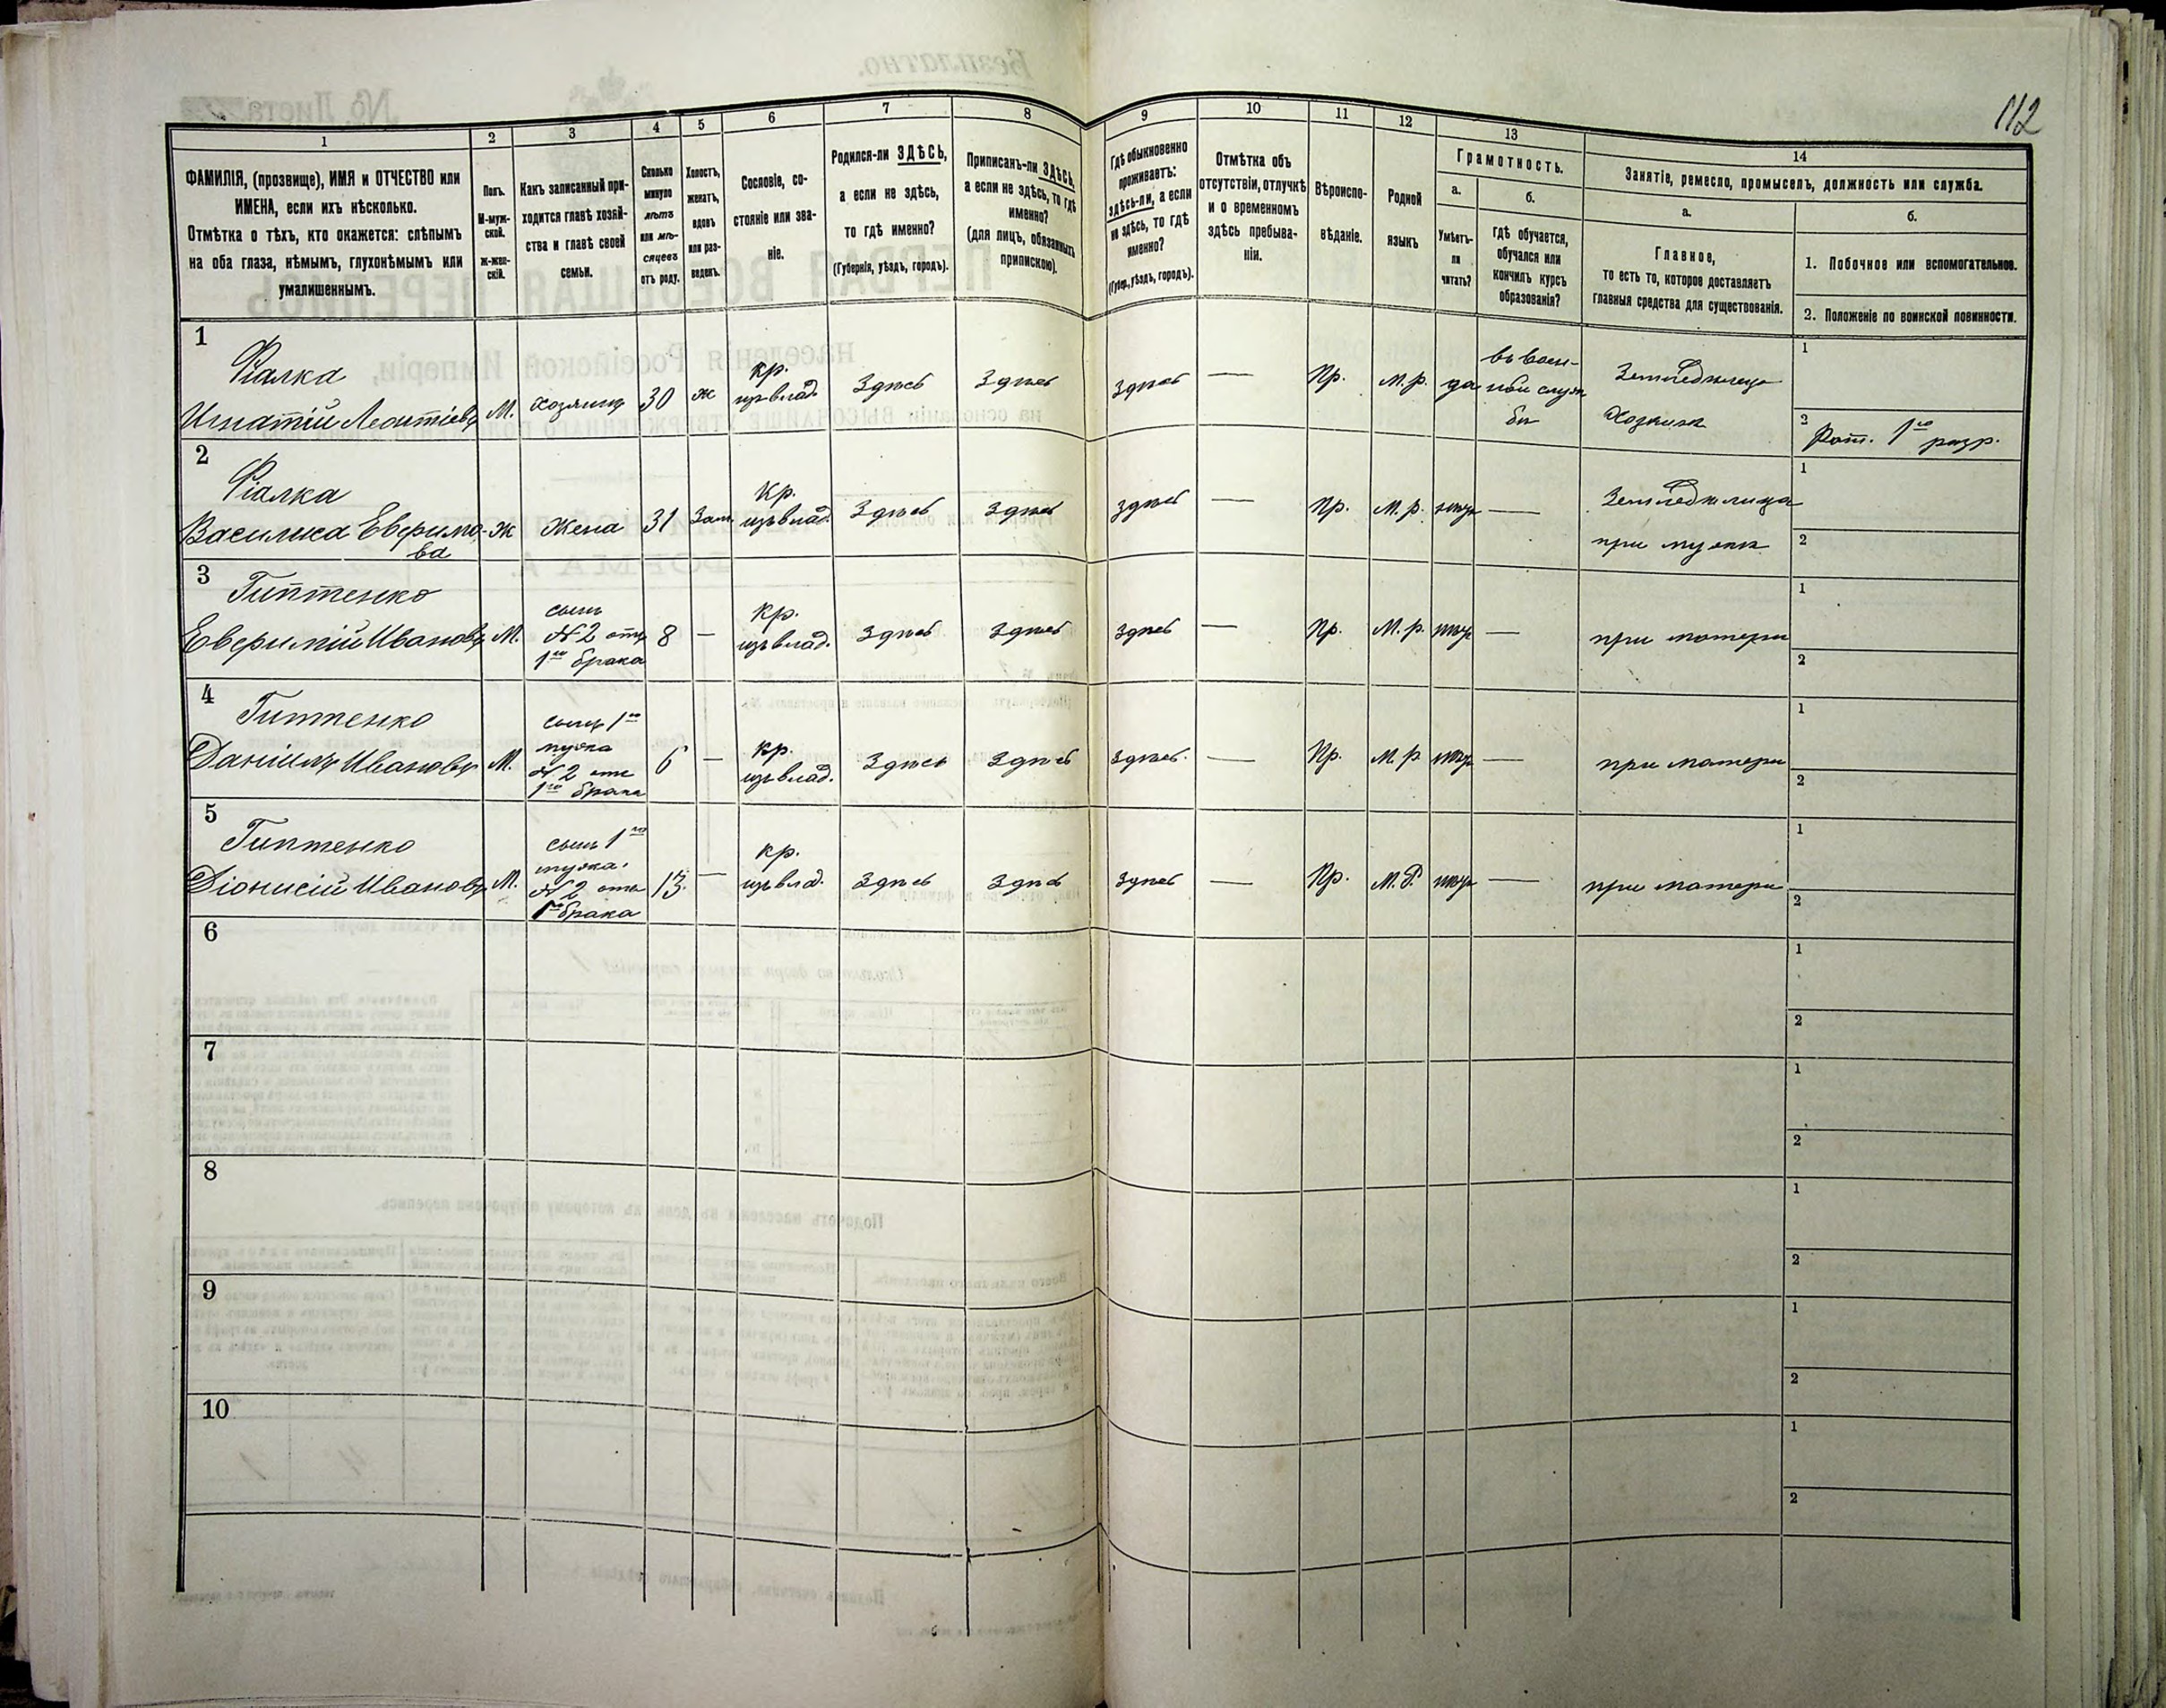 112
1
2
3
4
5
6
7
8
9
10
11
12
13
14
ФАМИЛІЯ, (прозвище), ИМЯ и ОТЧЕСТВО или
ИМЕНА, если ихъ нѣсколько.
Отмѣтка о тѣхъ, кто окажется: слѣпымъ
на оба глаза, нѣмымъ, глухонѣмымъ или
умалишеннымъ.
Полъ.
М-муж-
ской.
Ж-жен-
скій.
Какъ записанный при-
ходится главѣ хозяй-
ства и главѣ своей
семьи.
Сколько
минуло
лѣтъ
или мѣ-
сяцевъ
отъ роду.
Холостъ,
женатъ,
вдовъ
или раз-
веденъ.
Сословіе, со-
стояніе или зва-
ніе.
Родился-ли ЗДѢСЬ,
а если не здѣсь,
то гдѣ именно?
(Губернія, уѣздъ, городъ).
Приписанъ-ли ЗДѢСЬ,
а если не здѣсь, то гдѣ
именно?
(для лицъ, обязанныхъ
припискою).
Гдѣ обыкновенно
проживаетъ:
здѣсь-ли, а если
не здѣсь, то гдѣ
именно?
(Губер., уѣздъ, городъ).
Отмѣтка объ
отсутствіи, отлучкѣ
и о временномъ
здѣсь пребыва-
ніи.
Вѣроиспо-
вѣданіе.
Родной
языкъ
Грамотность.
а.
Умѣетъ-
ли
читать?
б.
гдѣ обучается,
обучался или
кончилъ курсъ
образованія?
Занятіе, ремесло, промыселъ, должность или служба.
а.
Главное,
то есть то, которое доставляетъ
главныя средства для существованія.
б.
1. Побочное или вспомогательное.
2. Положеніе по воинской повинности.
1
Фіалка
Игнатій Леонтіевъ
М.
Хозяинъ
30
ж
кр.
изъ влад.
Здѣсь
Здѣсь
Здѣсь
—
Пр.
М.р.
да
въ воен-
ной служ
бѣ
Земледѣлецъ
Хозяинъ
1
2
Рат. 1го разр.
2
Фіалка
Василиса Евфимо-
ва
Ж
Жена
31
Зам.
Кр.
изъ влад.
Здѣсь
Здѣсь
Здѣсь
—
Пр.
М.р.
—
Земледѣлица
при мужѣ
1
2
3
Гиптенко
Евфимій Ивановъ
М.
сынъ
№2 отъ
1го брака
8
—
Кр.
изъ влад.
Здѣсь
Здѣсь
Здѣсь
—
Пр.
М.р.
—
при матери
1
2
4
Гиптенко
Даніилъ Ивановъ
М.
сынъ 1го
мужа
№2 отъ
1го брака
6
—
кр.
изъ влад.
Здѣсь
Здѣсь
Здѣсь.
—
Пр.
М.р.
—
при матери
1
2
5
Гиптенко
Діонисій Ивановъ
М.
сынъ 1го
мужа.
№2 отъ
1го брака
13.
—
кр.
изъ влад.
Здѣсь
Здѣсь
Здѣсь
—
Пр.
М.р.
—
при матери
1
2
6
1
2
7
1
2
8
1
2
9
1
2
10
1
2